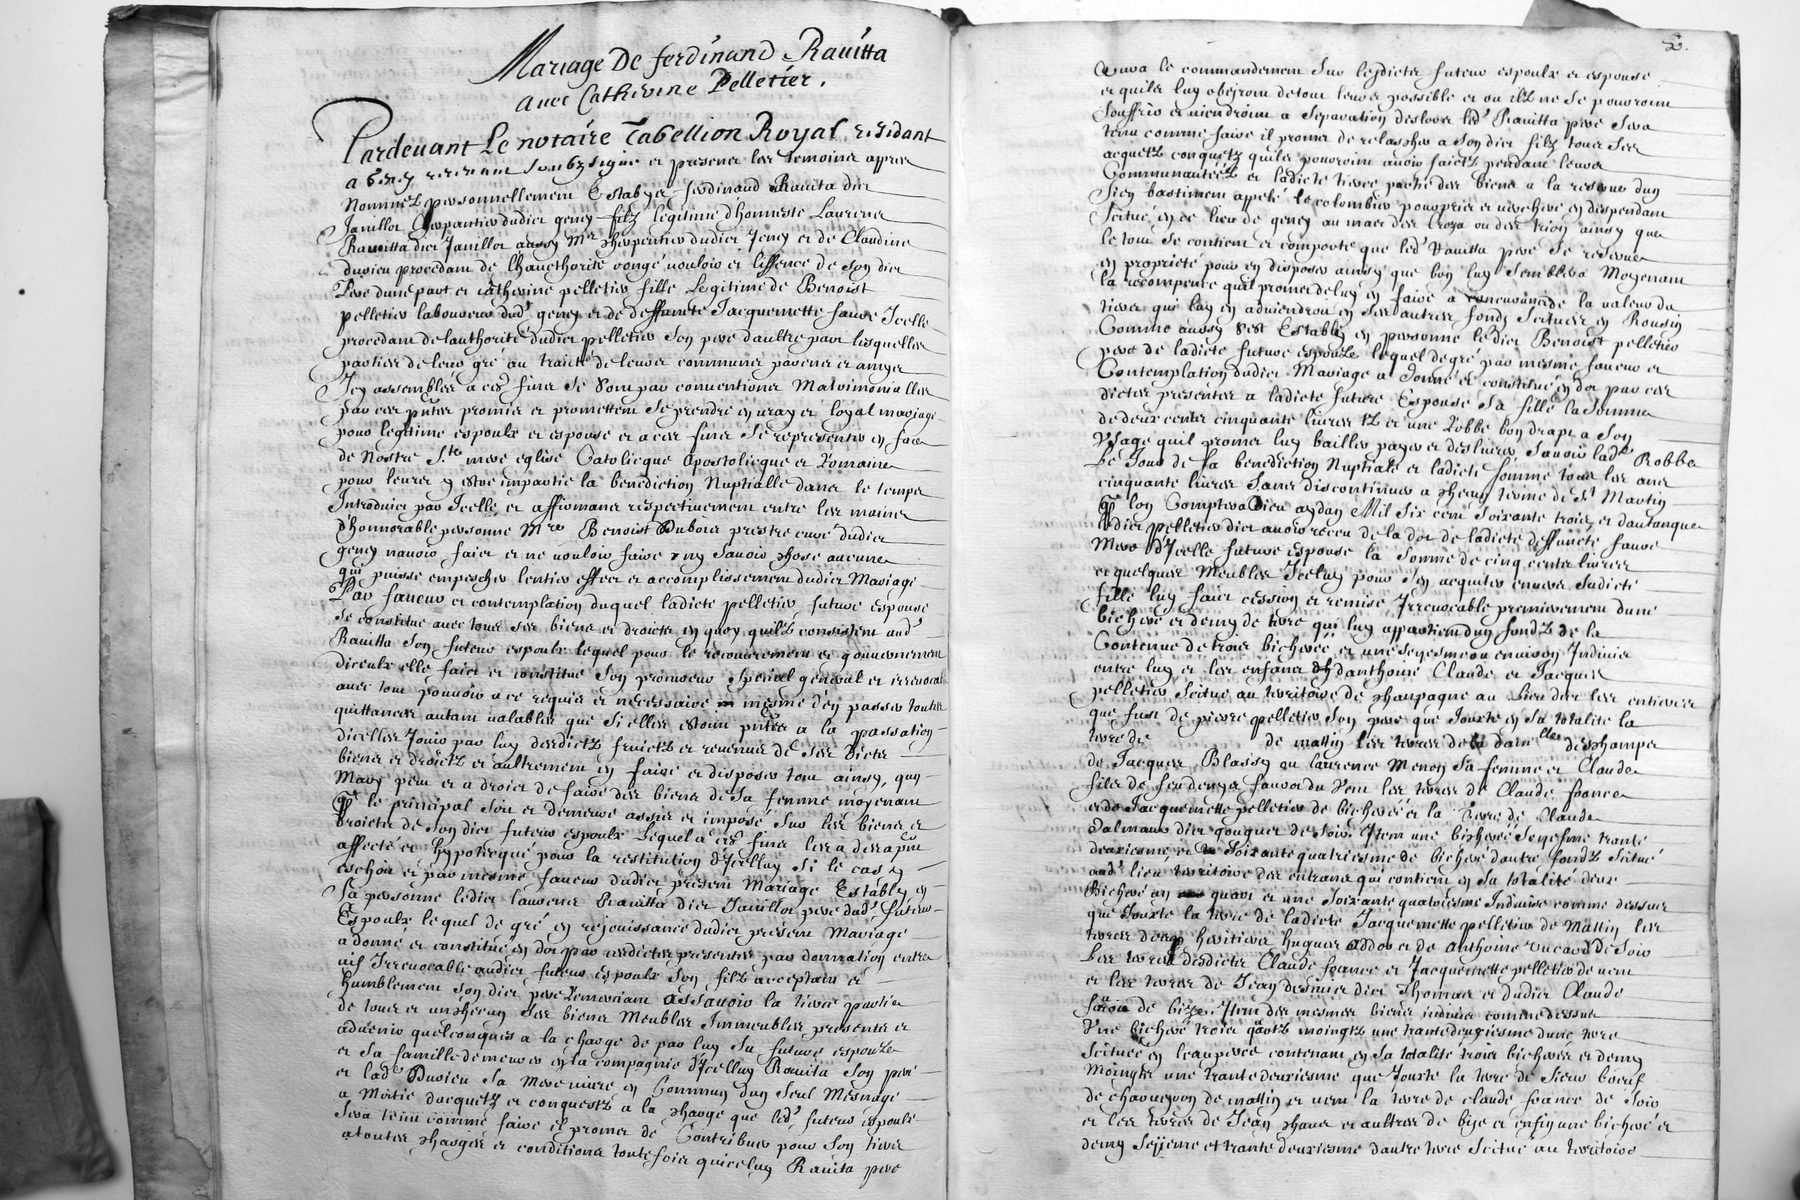 Mariage De ferdinand Rauitta
auec Catherine Pelletier.
Pardeuant Le notaire Tabellion Royal residant
a Geney soubzsigné et presence les temoins apres
Nommez personnellement Estably ferdinand Rauita dict
Janillot Charpantier dudict geney filz legitime d'honneste Laurence
Rauitta dict Janillot aussy Me charpentier dudict Jeney et de Claudine
duvieu procedam de lhaucthorité congé uouloir et lissence de son dict
Pere dune part et catherine pelletier fille Legitime de Benoist
pelletier laboureur dud geney et de deffuncte Jacquemette faure Jcelle
procedam de lauthorité dudict pelletier son pere daultre part lisquelles
parties de leur gré au traicté de leurs communs parens et amys
Jcy assemblés a ces fins se sont par conuentions Matrimonialles
par ces pntes promis et promettent se prendre en uray et loyal mariage
pour legitime espoulx et espouse et a ces fins se representer en face
de Nostre Ste mere eglise Catolicque Apostolicque et Romaine
pour leurs y estre impartie la benediction Nuptialle dans le temps
Introduict par Jcelle et affirmans respectiuement entre les mains
d'honnorable personne Mre Benoist Dubois prestre curé dudict
geney nauoir faict et ne uouloir faire ny sauoir chose aucune
qui puisse empescher lentier effect et accomplissement dudict Mariage
Par faueur et contemplation duquel ladicte pelletier future espouse
se constitue auec tous ses biens et droicts en quoy quilz consistent aud
Rauitta son futeur espoulx lequel pour le recouurement et gouuernement
diceulx elle faict et constitue son procureur special general et irreuocable
auec tout pouuoir a ce requis et necessaire mesme d'en passer toutes
quittances autant ualables que si elles estoint pntes a la passation
dicelles Jouir par luy desdictz fruictz et reuenus de ses dicts
biens et droictz et aultrement en faire et disposer tout ainsy quun
Mary peut et a droict de faire des biens de sa femme moyenant
que le principal soit et demeure assis et imposé sur les biens et
droicts de son dict futeur espoulx Lequel a ces fins les a des apnt
affecté et hypothequé pour la restitution d'Jcelluy si le cas y
eschoit et par mesme faueur dudict present Mariage Estably en
sa personne ledict laurence Rauitta dict Janillot pere dud futeur
Espoulx lequel de gré en rejouissance dudict present Mariage
a donné et constitué en dot par cesdictes presentes par donnation entre
uifs Jrreuocable audict futeur espoulx son filz acceptant et
humblement son dict pere remerciant assauoir la tierce partie
de tous et un chacun ses biens Meubles Jmmeubles presents et
aduenir quelconques a la charge de par luy sa future espouze
et sa famille demeurer en la compagnie d'Jcelluy Rauita son pere
et lad Duuieu sa mere uiure en Commun dun seul Mesnage
a Moitié dacquetz et conquestz a la charge que led futeur espoulx
sera tenu comme faire il promet de Contribuer pour son tiers
a toutes charges et conditions toutefois quicelluy Rauita pere
2.
aura le commandement sur lesdicts futeur espoulx et espouse
et quils luy obeiront de tout leur possible et ou ilz ne se pouroint
souffrir et uiendroint a separation desloers led Rauitta pere sera
tenu comme faire il promet de relascher a son dict filz tous ses
acquetz conquetz quils pouroint auoir faictz pendant leurs
Communautéz et ladicte tierce partie des biens a la reserue dun
sien bastiment appelé le colombier pourpris et uerchere en dispendant
scitué en ce lieu de geney au mas des Croza ou des trion ainsy que
le tout se contient et comporte que led Rauitta pere se reserue
en proprieté pour en disposer ainsy que bon luy semblera Moyenant
la recompence quil promet de luy en faire a concurance de la ualeur du
tiers qui luy en aduiendroit en ses autres fonds scitués en Roussin
Comme aussy s'est Estably en personne ledict Benoist pelletier
pere de ladicte future espouze lequel de gré par mesme faueur et
Contemplation dudict Mariage a donné et constitué en dot par ces
dictes presentes a ladicte future Espouse sa fille la somme
de deux cents cinquante liures tz et une Robbe bon drapt a son
Vsage quil promet luy bailler payer et desliurer sauoir lad Robbe
Le Jour de sa benediction Nuptiale et ladicte somme tous les ans
cinquante liures sans discontinuer a chacun terme de St Martin
que lon Comptera Dieu aydant Mil six cent soixante trois et dautanque
ledict pelletier dict auoir receu de la dot de ladicte deffuncte faure
Mere d'Jcelle future espouse la somme de cinq cents liures
et quelques Meubles Jceluy pour s'en acquiter enuers sadicte
fille luy faict cession et remise Jrreuocable premierement dune
bicheré et demy de terre qui luy appartient dun fondz de la
Contenue de trois bicherés et une seziesme ou enuiron Jndiuis
entre luy et les enfans danthoine Claude et Jacques
pelletier scitué au territoire de champagne au Lieu dict les entieres
que fust de pierre pelletier son pere que Jouxte en sa totalité la
terre de de mattin les terres de la dam lles deschamps
de Jacques Blassy ou laurence Menoy sa femme et Claude
fils de feu denys fauor du uent les terres de Claude france
et de Jacquemette pelletier de bicherés et la Terre de Claude
dalmais dict gouguet de soir Jtem une bicheré seziesme trante
deuxiesme et soixante quatriesme de bicheré dautre fondz scitué
aud lieu territoire des entrans qui contient en sa totalité deux
Bicheré un quart et une soixante quatriesme Jndiuise comme dessus
que Jouxte la terre de ladicte Jacquemette pelletier de Mattin les
terres des heritiers hugues addot et de anthoine de soir
Les terres desdicts Claude france et Jacquemette pelletier de uent
et les terres de Jean desinet dict Thomas et dudict Claude
de bize Jtem des mesmes biens indiuis comme dessus
Vne bicheré trois quartz moingtz une trante deuxiesme dune terre
scituée en leauperce contenant en sa totalité trois bicherés et demy
moingts une trante deuxiesme que Jouxte la terre de sieur boeuf
de chaourgnon de mattin et uent la terre de claude france de soir
et les terres de Jean chana et aultres de bize et enfin une bicheré et
demy seziesme et trante deuxiesme dautre terre scituée au territoire